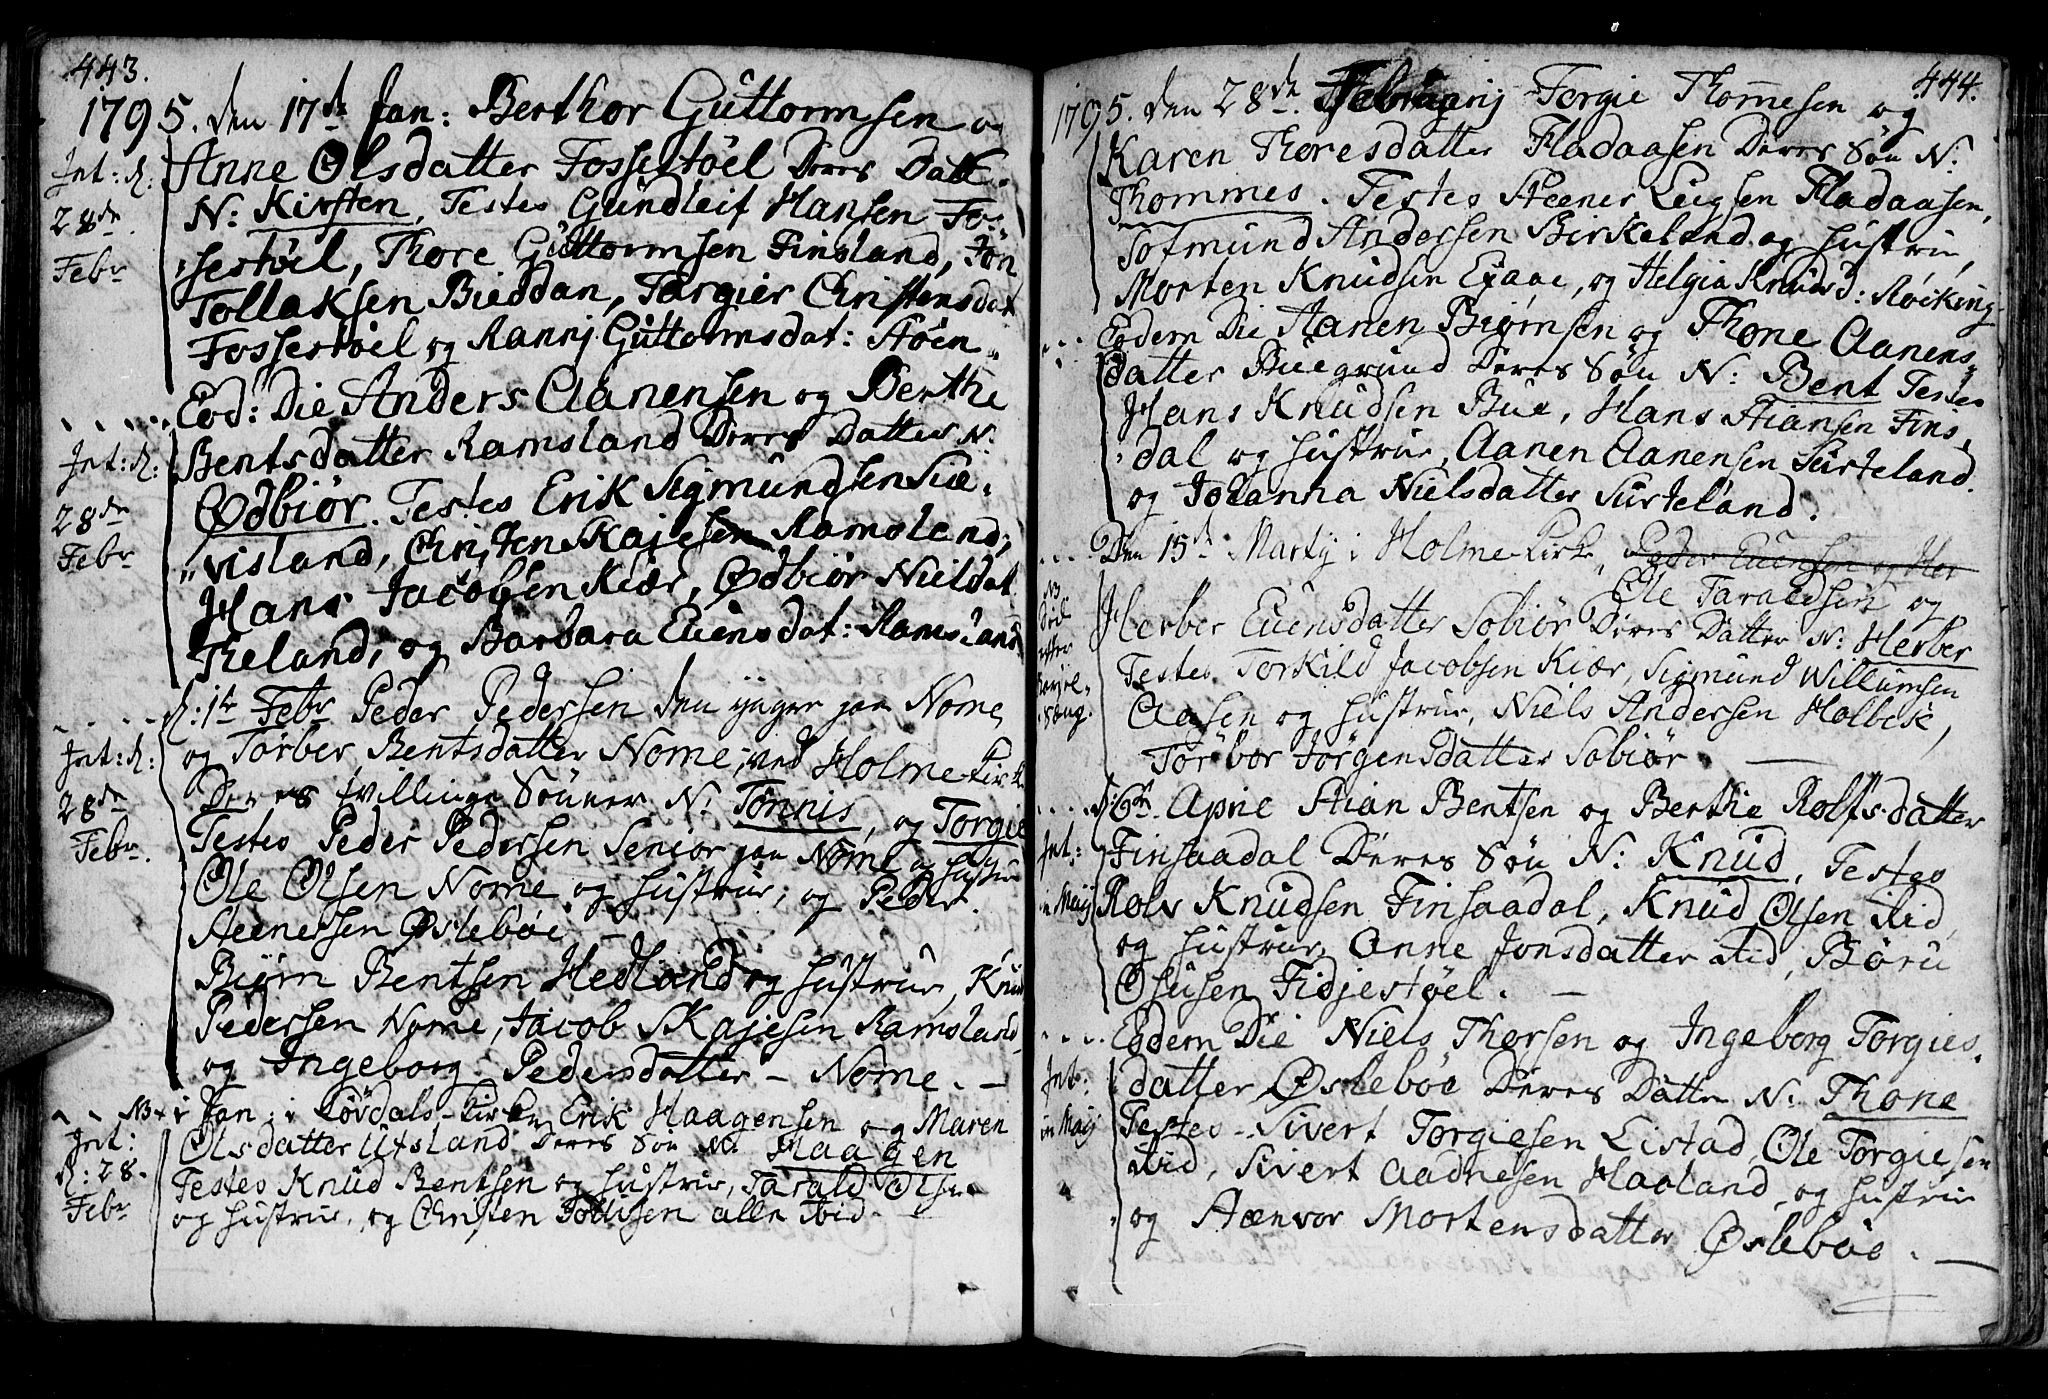 443.
1795. den 17de Jan: Berthor Guttormsen og
Int: d: Anne Olsdatter Fossestøel Deres Datt.
28de N: Kirsten, Testes Gundleif Hansen Fos-
Febr sestøel, Thore Guttormsen Finsland, Jon
Tollaksen Bieddan, Torgier Christensdat
Fossestøel og Ranni Guttormsdat: Støen
Eod: Die Anders Aanensen og Berthe
Int: d: Bentsdatter Ramsland Deres Datter N:
28de Ødbiør. Testes Erik Sigmundsen Sie-
Febr visland, Christen Skajesen Ramsland,
Hans Jacobsen Kiær, Ødbiør Nielsdat
Theland, og Barbara Evensdat: Ramsland
d: 1te Febr Peder Pedersen den yngre paa Nome,
Int: d: og Torber Bentsdatter Nome, ved Holme-Kirke
28de Deres tvillinge Sønner N: Tønnis, og Torgie
Febr. Testes Peder Pedersen Senior paa Nome og hustru
Ole Olsen Nome og hustrue, og Peder
Steenersen Øslebøe —
Biørn Bentsen Hedland og hustrue, Knud
Pedersen Nome, Jacob Skajesen Ramsland,
og Ingeborg Pedersdatter — Nome. —
NB i Jan: i Løvdals-Kirke Erik Haagensen og Maren
Int: Olsdatter Udsland Deres Søn N: Haagen
d: 28. Testes Knud Bentsen og hustrue, Tarald Olsen
Febr og hustrue, og Christen Tollisen alle ibid.
444.
1795. den 28de Februarij Torgie Thommesen og
Karen Thoresdatter Fladaasen Deres Søn N:
Thommes. Testes Steener Fladaasen,
Tofmund Andersen Birkeland og hustrue,
Morten Knudsen Eiaae, og Helgia Knudsd: Røiking
Eodem Die Aanen Biørnsen og Thone Aanens-
datter Buegrund Deres Søn N: Bent Testes
Hans Knudsen Bue, Hans Stiansen Fins-
dal og hustrue, Aanen Aanensen Surteland.
og Johanna Nielsdatter Surteland.
Den 15de Martij i Holme-Kirke, Peder Evensen og Her
Ole Taraldsen og
NB Herber Evensdatter Sobiør Deres Datter N: Herber
Testes Torkild Jacobsen Kiær, Sigmund Willumsen
Aasen og hustrue, Niels Andersen Holbek,
Torbor Jørgensdatter Sobiør. —
d: 6te Apne Stian Bentsen og Berthe Rolfsdatter
Int: Finsaadal Deres Søn N: Knud, Testes
in Maij Rolv Knudsen Finsaadal, Knud Olsen ibid,
og hustrue, Anne Jonsdatter ibid, Børu
Osusen Fidjestøel. —
Eodem Die Niels Thorsen og Ingeborg Torgies-
Int: datter Øslebøe Deres Datter N: Thone
in Maij Testes — Sivert Torgiesen Listad, Ole Torgiesen
ibid, Sivert Aadnesen Haaland, og hustrue
og Steenvor Mortensdatter Øslebøe. —